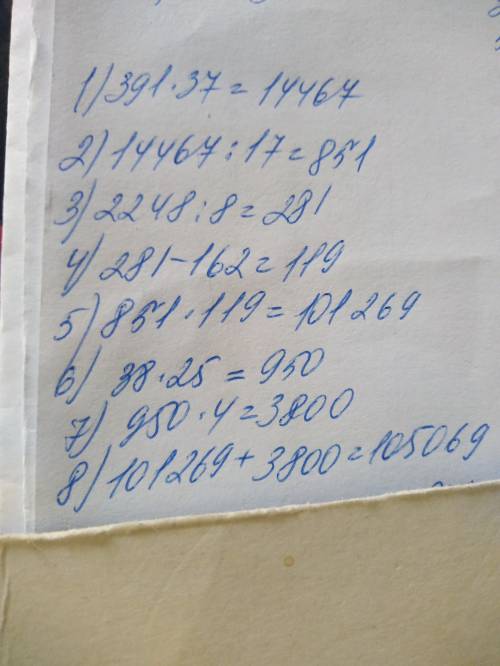 1) 391·37=14467
2) 14467:17=851
3) 2248:8=281
4) 281-162=119
5) 851·119=101269
6) 38·25=950
7) 950·4=3800
8) 101269+3800=105069